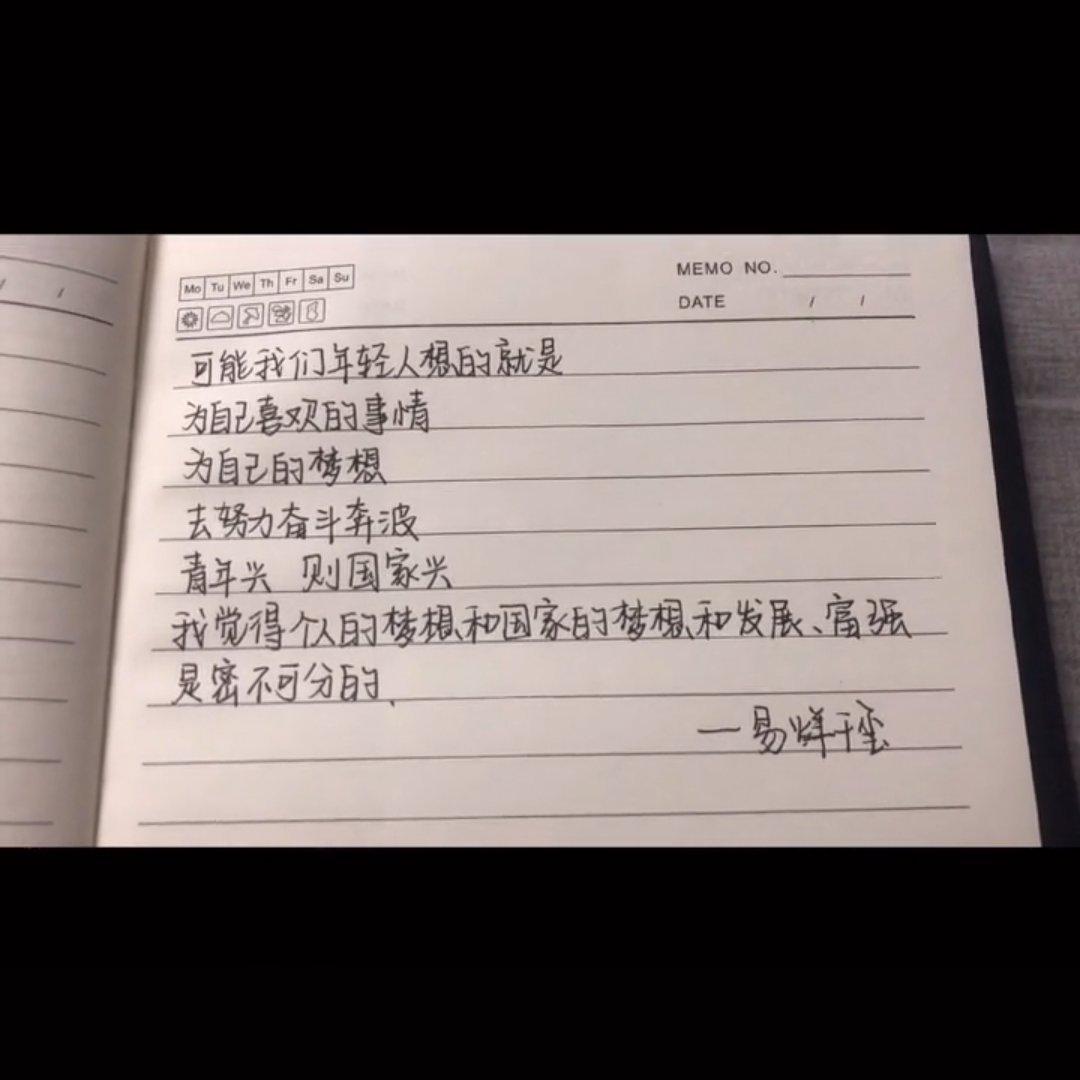 Mo Tu We Th Fr Sa Su
MEMO NO.
DATE / /
可能我们年轻人想的就是
为自己喜欢的事情
为自己的梦想
去努力奋斗奔波
青年兴 则国家兴
我觉得个人的梦想和国家的梦想和发展、富强
是密不可分的、
—易烊千玺